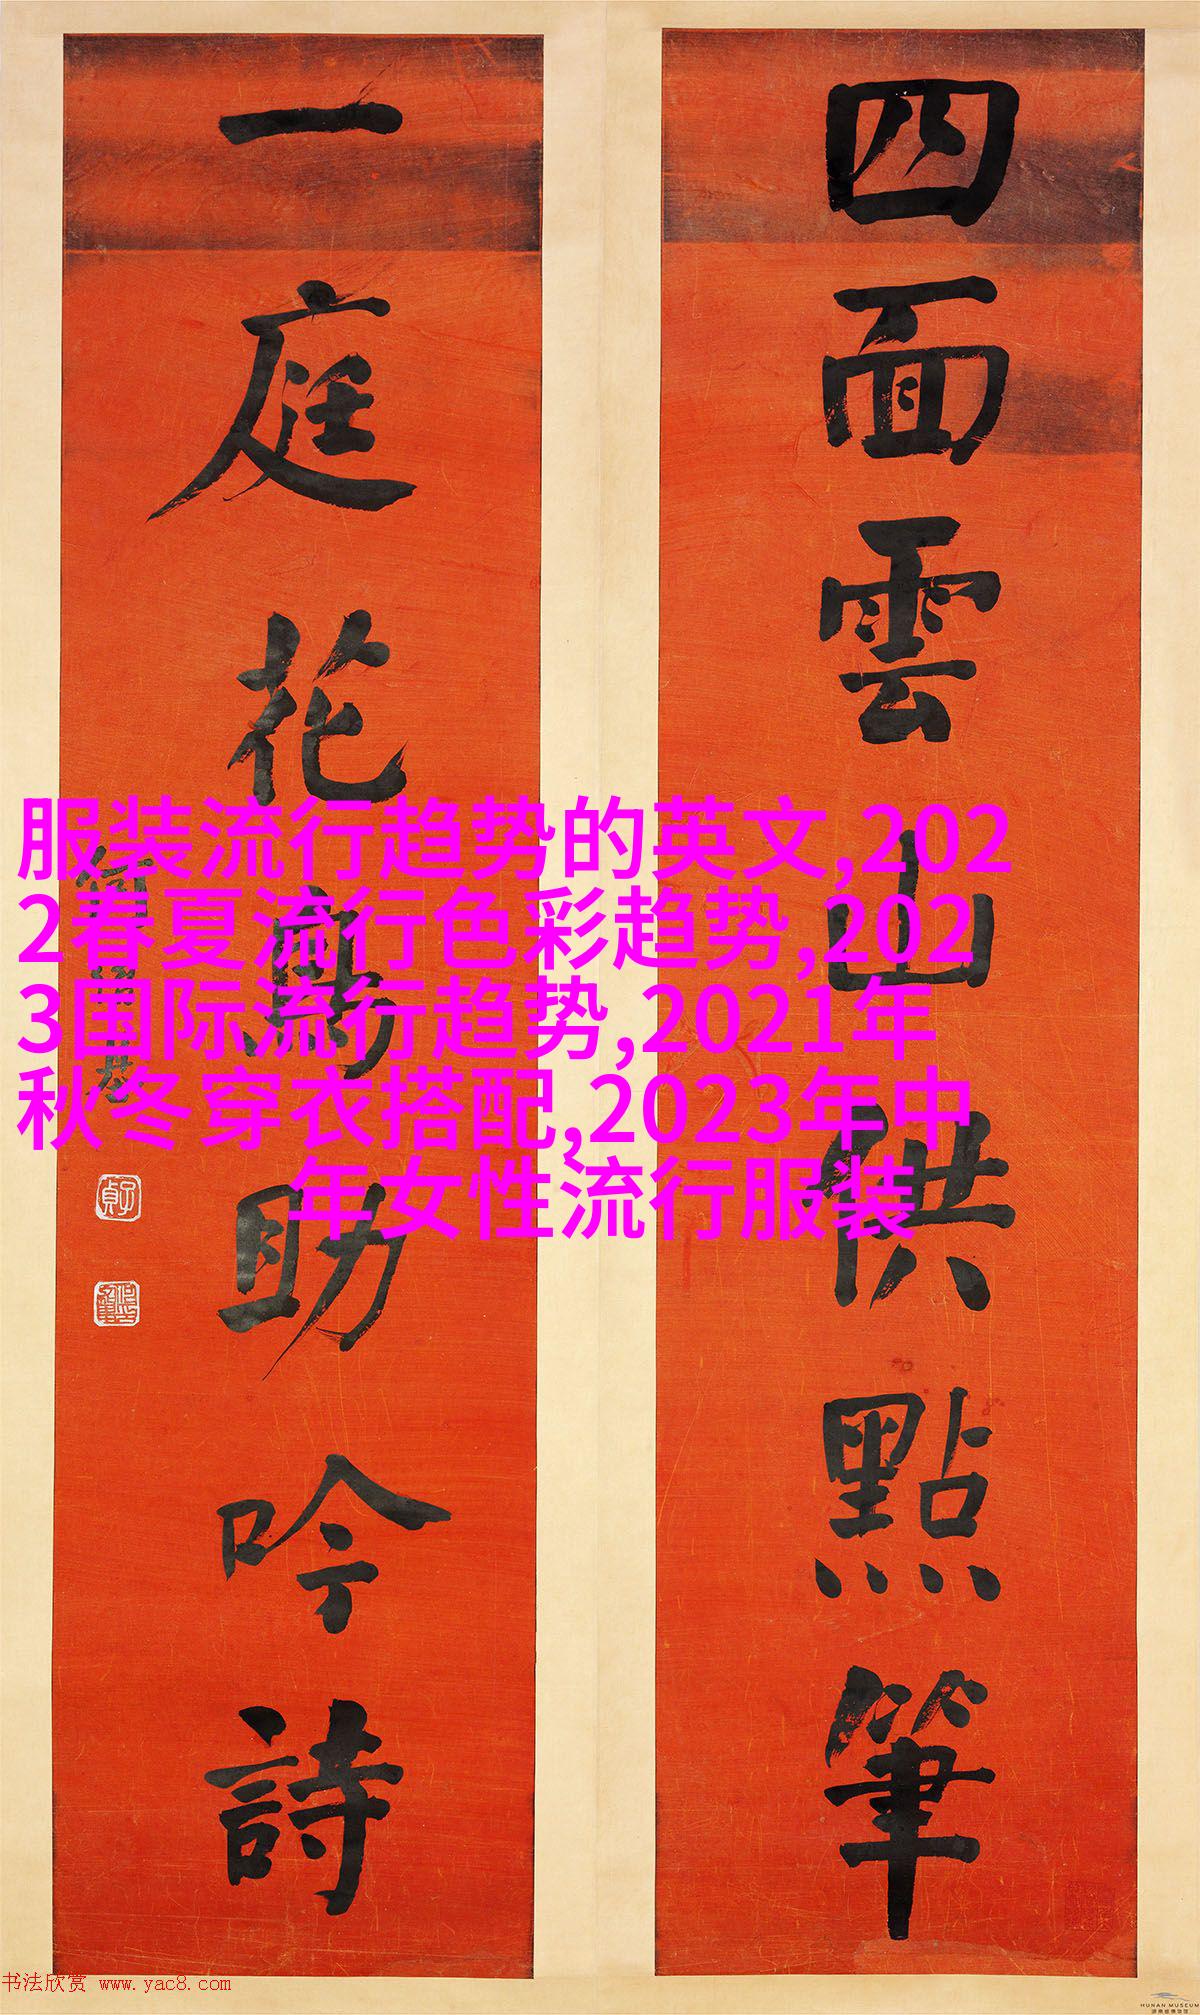 四面雲山供點筆
一庭花鳥助吟詩
何紹基
服装流行趋势的英文,202
2春夏流行色彩趋势,202
3国际流行趋势,2021年
秋冬穿衣搭配,2023年中
年女性流行服装
书法欣赏 www.yac8.com
HUNAN MUSEUM